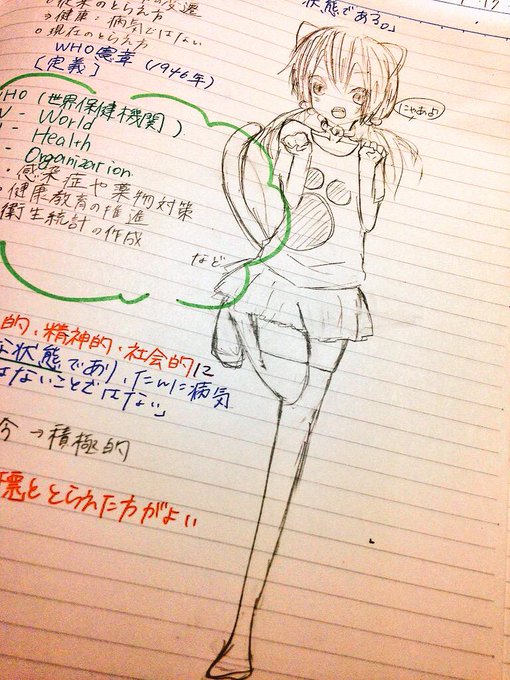 状態である。」
17
従来のとらえ方
→健康=病気ではない
○現在のとらえ方
WHO憲章(1946年)
[定義]
WHO(世界保健機関)
W - World
- Health
- Organization
・感染症や薬物対策
○健康教育の推進
衛生統計の作成
など
にゃあよ
的、精神的、社会的に
な状態であり、たんに病気
はないことではない」
今→積極的
ととらえた方がよい